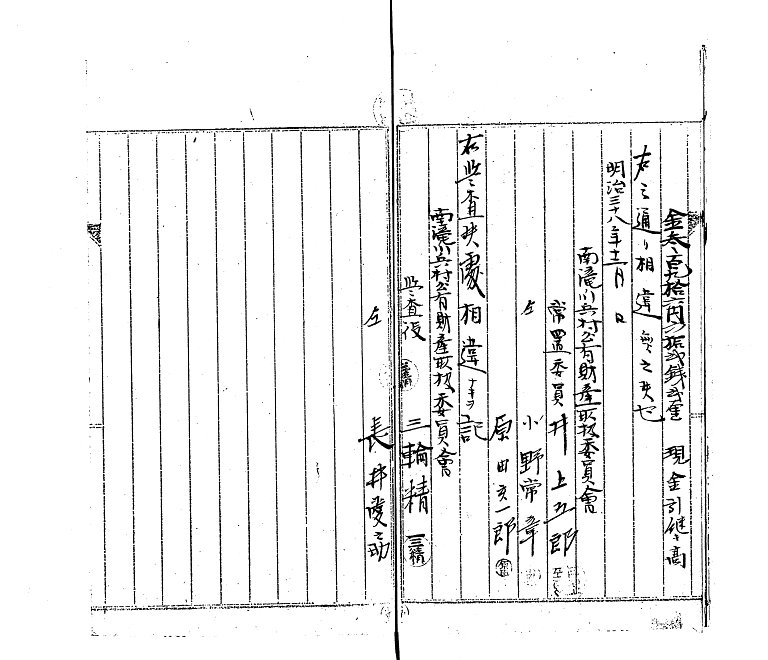 金参百九拾六円〇拾弐銭弐厘 現金引継高
右之通リ相違無之候也
明治三十八年十二月 日
南滝川兵村公有財産取扱委員会
常置委員 井上五郎
仝 小野常章
原田亥一郎
右監査候処相違ナキヲ記
南滝川兵村公有財産取扱委員会
監査役 三輪精
仝 長井愛之助